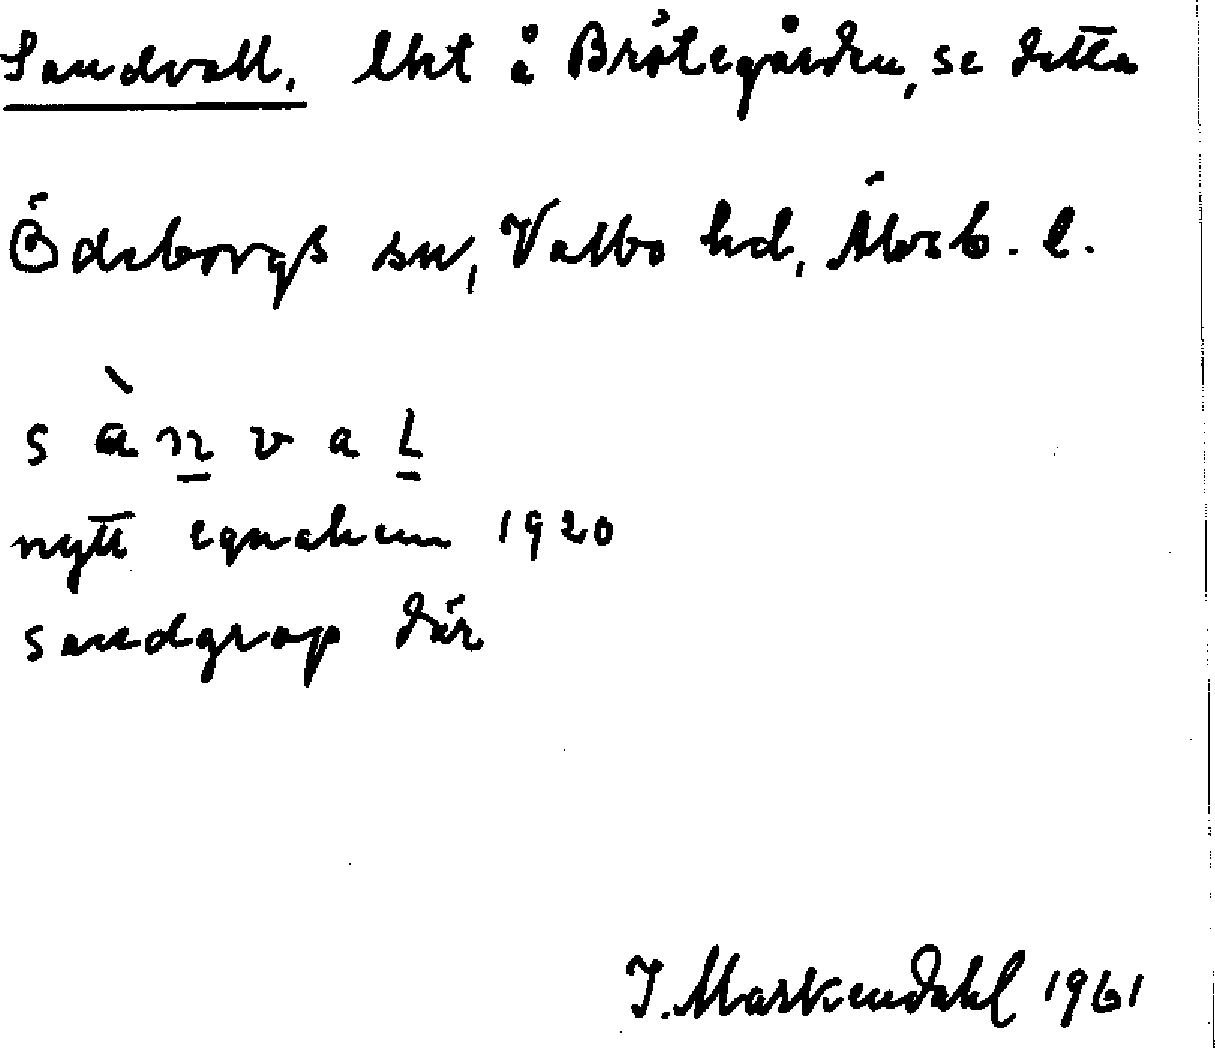 Sandvall. lht å Brötegården, se detta
Ödeborgs sn, Valbo hd, Älvsb. l.
sàn̲val̲
nytt egnahem 1920
sandgrop där
I. Markendahl 1961